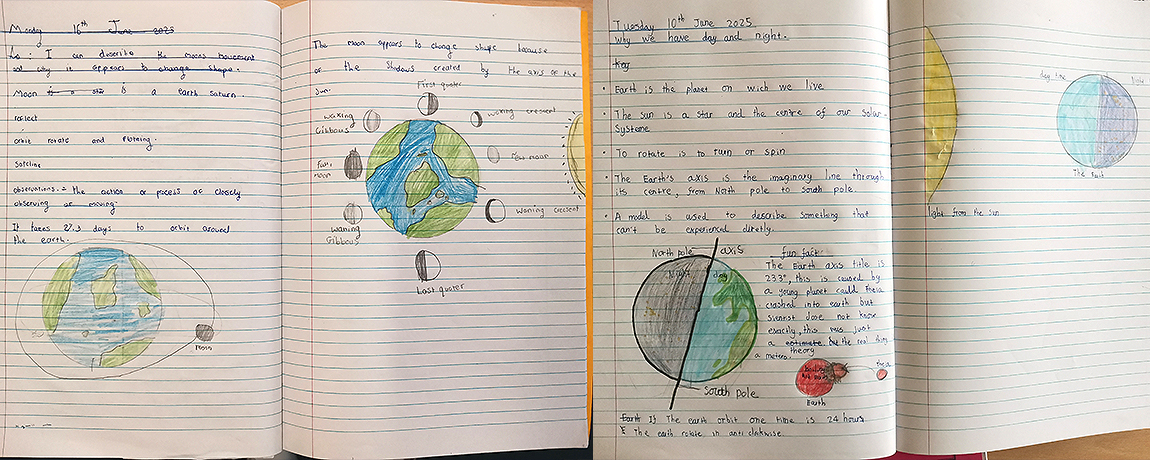 Monday 16th June 2025
Lo : I can describe the moons movement
and why it appears to change shape.
Moon is a star is a earth saturn.
reflect
orbit rotate and
Sateline
observations.= the action or process of closely
observing or moving.
It takes 27.3 days to orbit around
the earth.
Moon
The moon appears to change shape because
of the Shadows created by the axis of the
Sun.
First quater
waxing crescent
waxing
Gibbous
New moon
Full
moon
Waning crescent
waning
Gibbous
Last quater
Tuesday 10th June 2025
Why we have day and night.
Key
• Earth is the planet on wich we live
• The sun is a star and the centre of our Solar-
Systeme
• To rotate is to turn or spin
• The Earth's axis is the imaginary line through
its centre, from North pole to south pole.
• A model is used to describe something that
can't be experienced diretly.
North pole
axis
Night
day
South pole
fun fact:
The Earth axis title is
23.3°, this is caused by
a young planet could Theia
crashed into earth but
Sientist dose not know
exactly, this was just
a estimate but the real thing
theory
a meters.
Earth
theia
Earth If The earth orbit one time is 24 hours
The earth rotate in anti clokwise.
day time
Night
The Earth
light from the sun